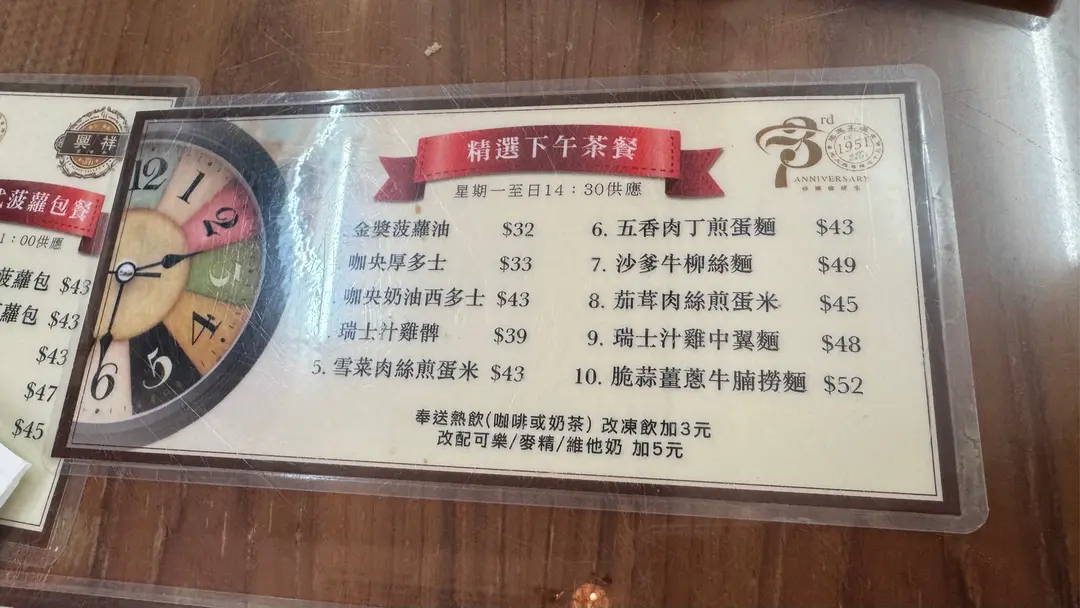 興祥
菠蘿包餐
1:00供應
菠蘿包 $43
蘿包 $43
$43
$47
$45
12
1
2
3
4
5
6
精選下午茶餐
星期一至日14:30供應
金獎菠蘿油 $32
咖央厚多士 $33
咖央奶油西多士 $43
瑞士汁雞髀 $39
5. 雪菜肉絲煎蛋米 $43
6. 五香肉丁煎蛋麵 $43
7. 沙爹牛柳絲麵 $49
8. 茄茸肉絲煎蛋米 $45
9. 瑞士汁雞中翼麵 $48
10. 脆蒜薑蔥牛腩撈麵 $52
奉送熱飲(咖啡或奶茶) 改凍飲加3元
改配可樂/麥精/維他奶 加5元
73rd
1951
ANNIVERSARY